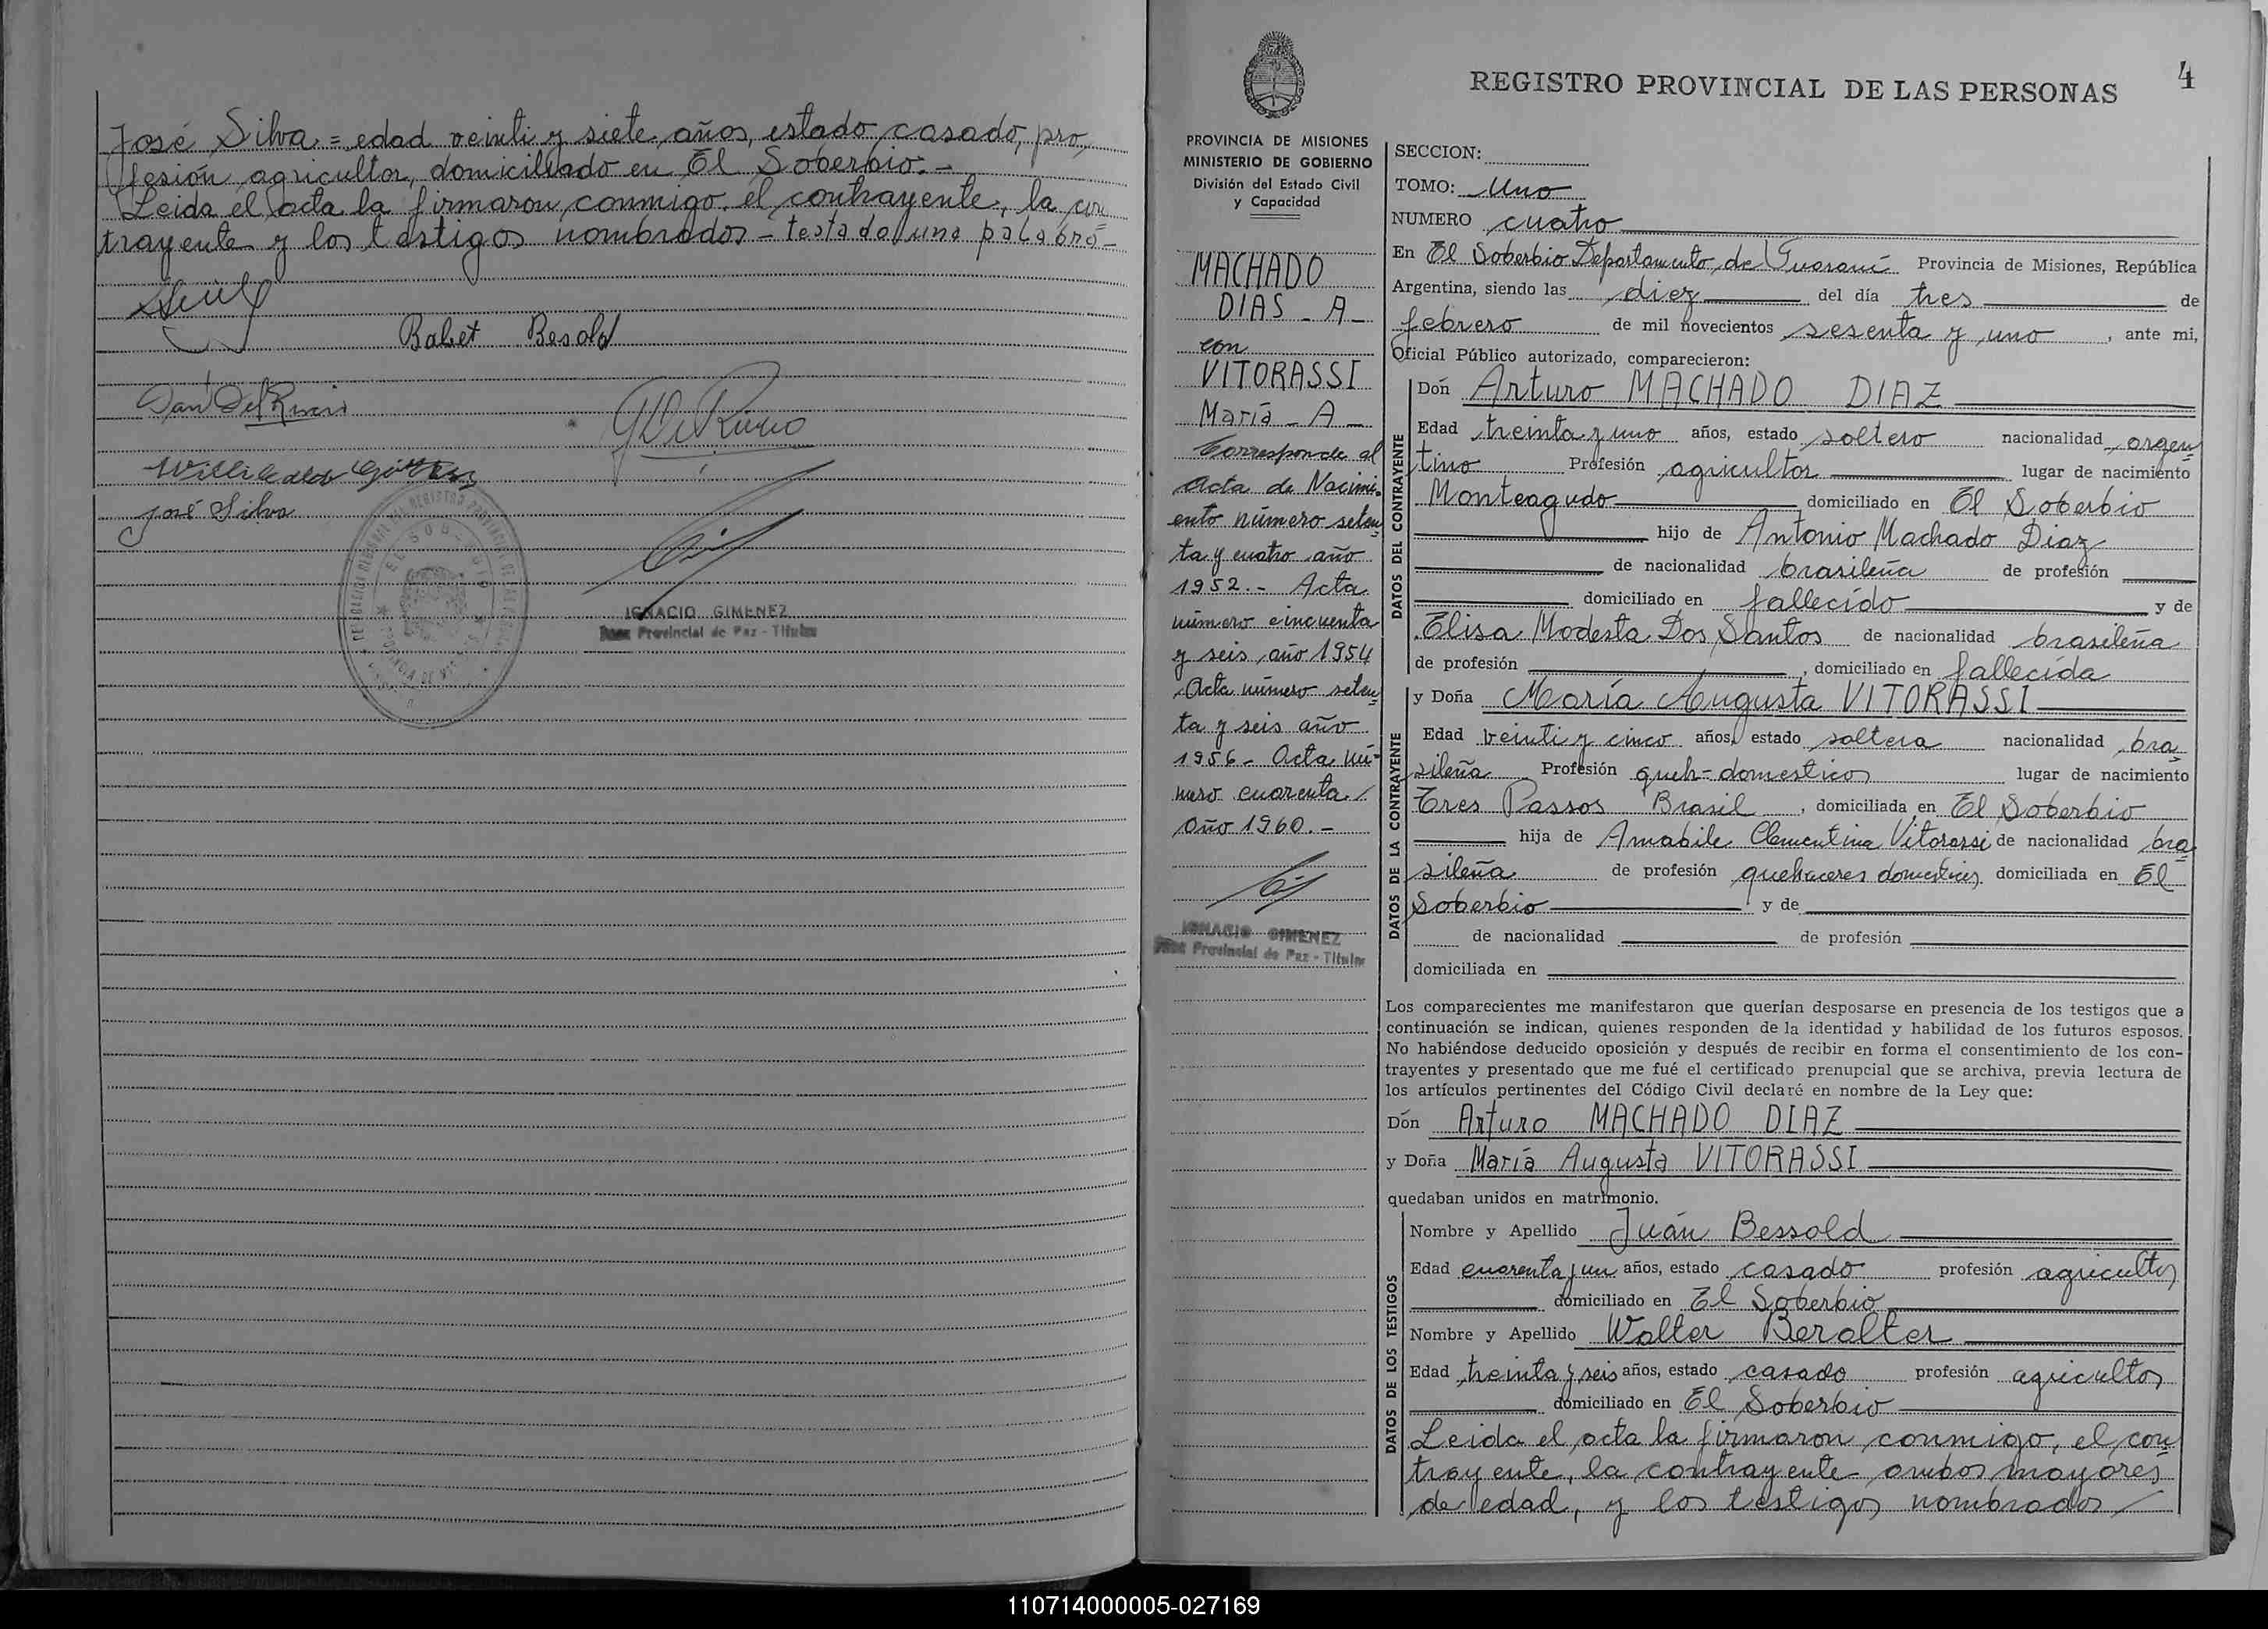 José Silva = edad veinti y siete años, estado casado, pro
fesión agricultor, domiciliado en El Soberbio. -
Leida el acta la firmaron conmigo, el contrayente, la con
trayente y los testigos nombrados - testado una palabra -
Babet Besold
José Silva
IGNACIO GIMENEZ
Juez Provincial de Paz - Titular
4
REGISTRO PROVINCIAL DE LAS PERSONAS
PROVINCIA DE MISIONES
MINISTERIO DE GOBIERNO
División del Estado Civil
y Capacidad
MACHADO
DIAS - A -
con
VITORASSI
María - A -
Corresponde al
Acta de Nacimi-
ento número seten
ta y cuatro año
1952. - Acta
número cincuenta
y seis, año 1954
Acta número seten
ta y seis año
1956 - Acta nú-
mero cuarenta /
Año 1960. -
IGNACIO GIMENEZ
Juez Provincial de Paz - Titular
SECCION:
TOMO: Uno
NUMERO cuatro
En El Soberbio Departamento de Guaraní Provincia de Misiones, República
Argentina, siendo las diez del día tres de
febrero de mil novecientos sesenta y uno, ante mi,
Oficial Público autorizado, comparecieron:
DATOS DEL CONTRAYENTE
Don Arturo MACHADO DIAZ
Edad treinta y uno años, estado soltero nacionalidad argen
tino Profesión agricultor lugar de nacimiento
Monteagudo domiciliado en El Soberbio
hijo de Antonio Machado Diaz
de nacionalidad brasileña de profesión
domiciliado en fallecido y de
Elisa Modesta Dos Santos de nacionalidad brasileña
de profesión , domiciliado en fallecida
DATOS DE LA CONTRAYENTE
y Doña María Augusta VITORASSI
Edad veinti y cinco años, estado soltera nacionalidad bra
sileña Profesión queh-domesticos lugar de nacimiento
Tres Passos Brasil, domiciliada en El Soberbio
hija de Amabile Clementina Vitorassi de nacionalidad bra
sileña de profesión quehaceres domesticos domiciliada en El
Soberbio y de
de nacionalidad de profesión
domiciliada en
Los comparecientes me manifestaron que querían desposarse en presencia de los testigos que a
continuación se indican, quienes responden de la identidad y habilidad de los futuros esposos.
No habiéndose deducido oposición y después de recibir en forma el consentimiento de los con-
trayentes y presentado que me fué el certificado prenupcial que se archiva, previa lectura de
los artículos pertinentes del Código Civil declaré en nombre de la Ley que:
Dón Arturo MACHADO DIAZ
y Doña María Augusta VITORASSI
quedaban unidos en matrimonio.
DATOS DE LOS TESTIGOS
Nombre y Apellido Juán Bessold
Edad cuarenta y un años, estado casado profesión agricultor
domiciliado en El Soberbio
Nombre y Apellido Walter Beralter
Edad treinta y seis años, estado casado profesión agricultor
domiciliado en El Soberbio
Leida el acta la firmaron conmigo, el con
trayente, la contrayente - ambos mayores
de edad, y los testigos nombrados /
110714000005-027169